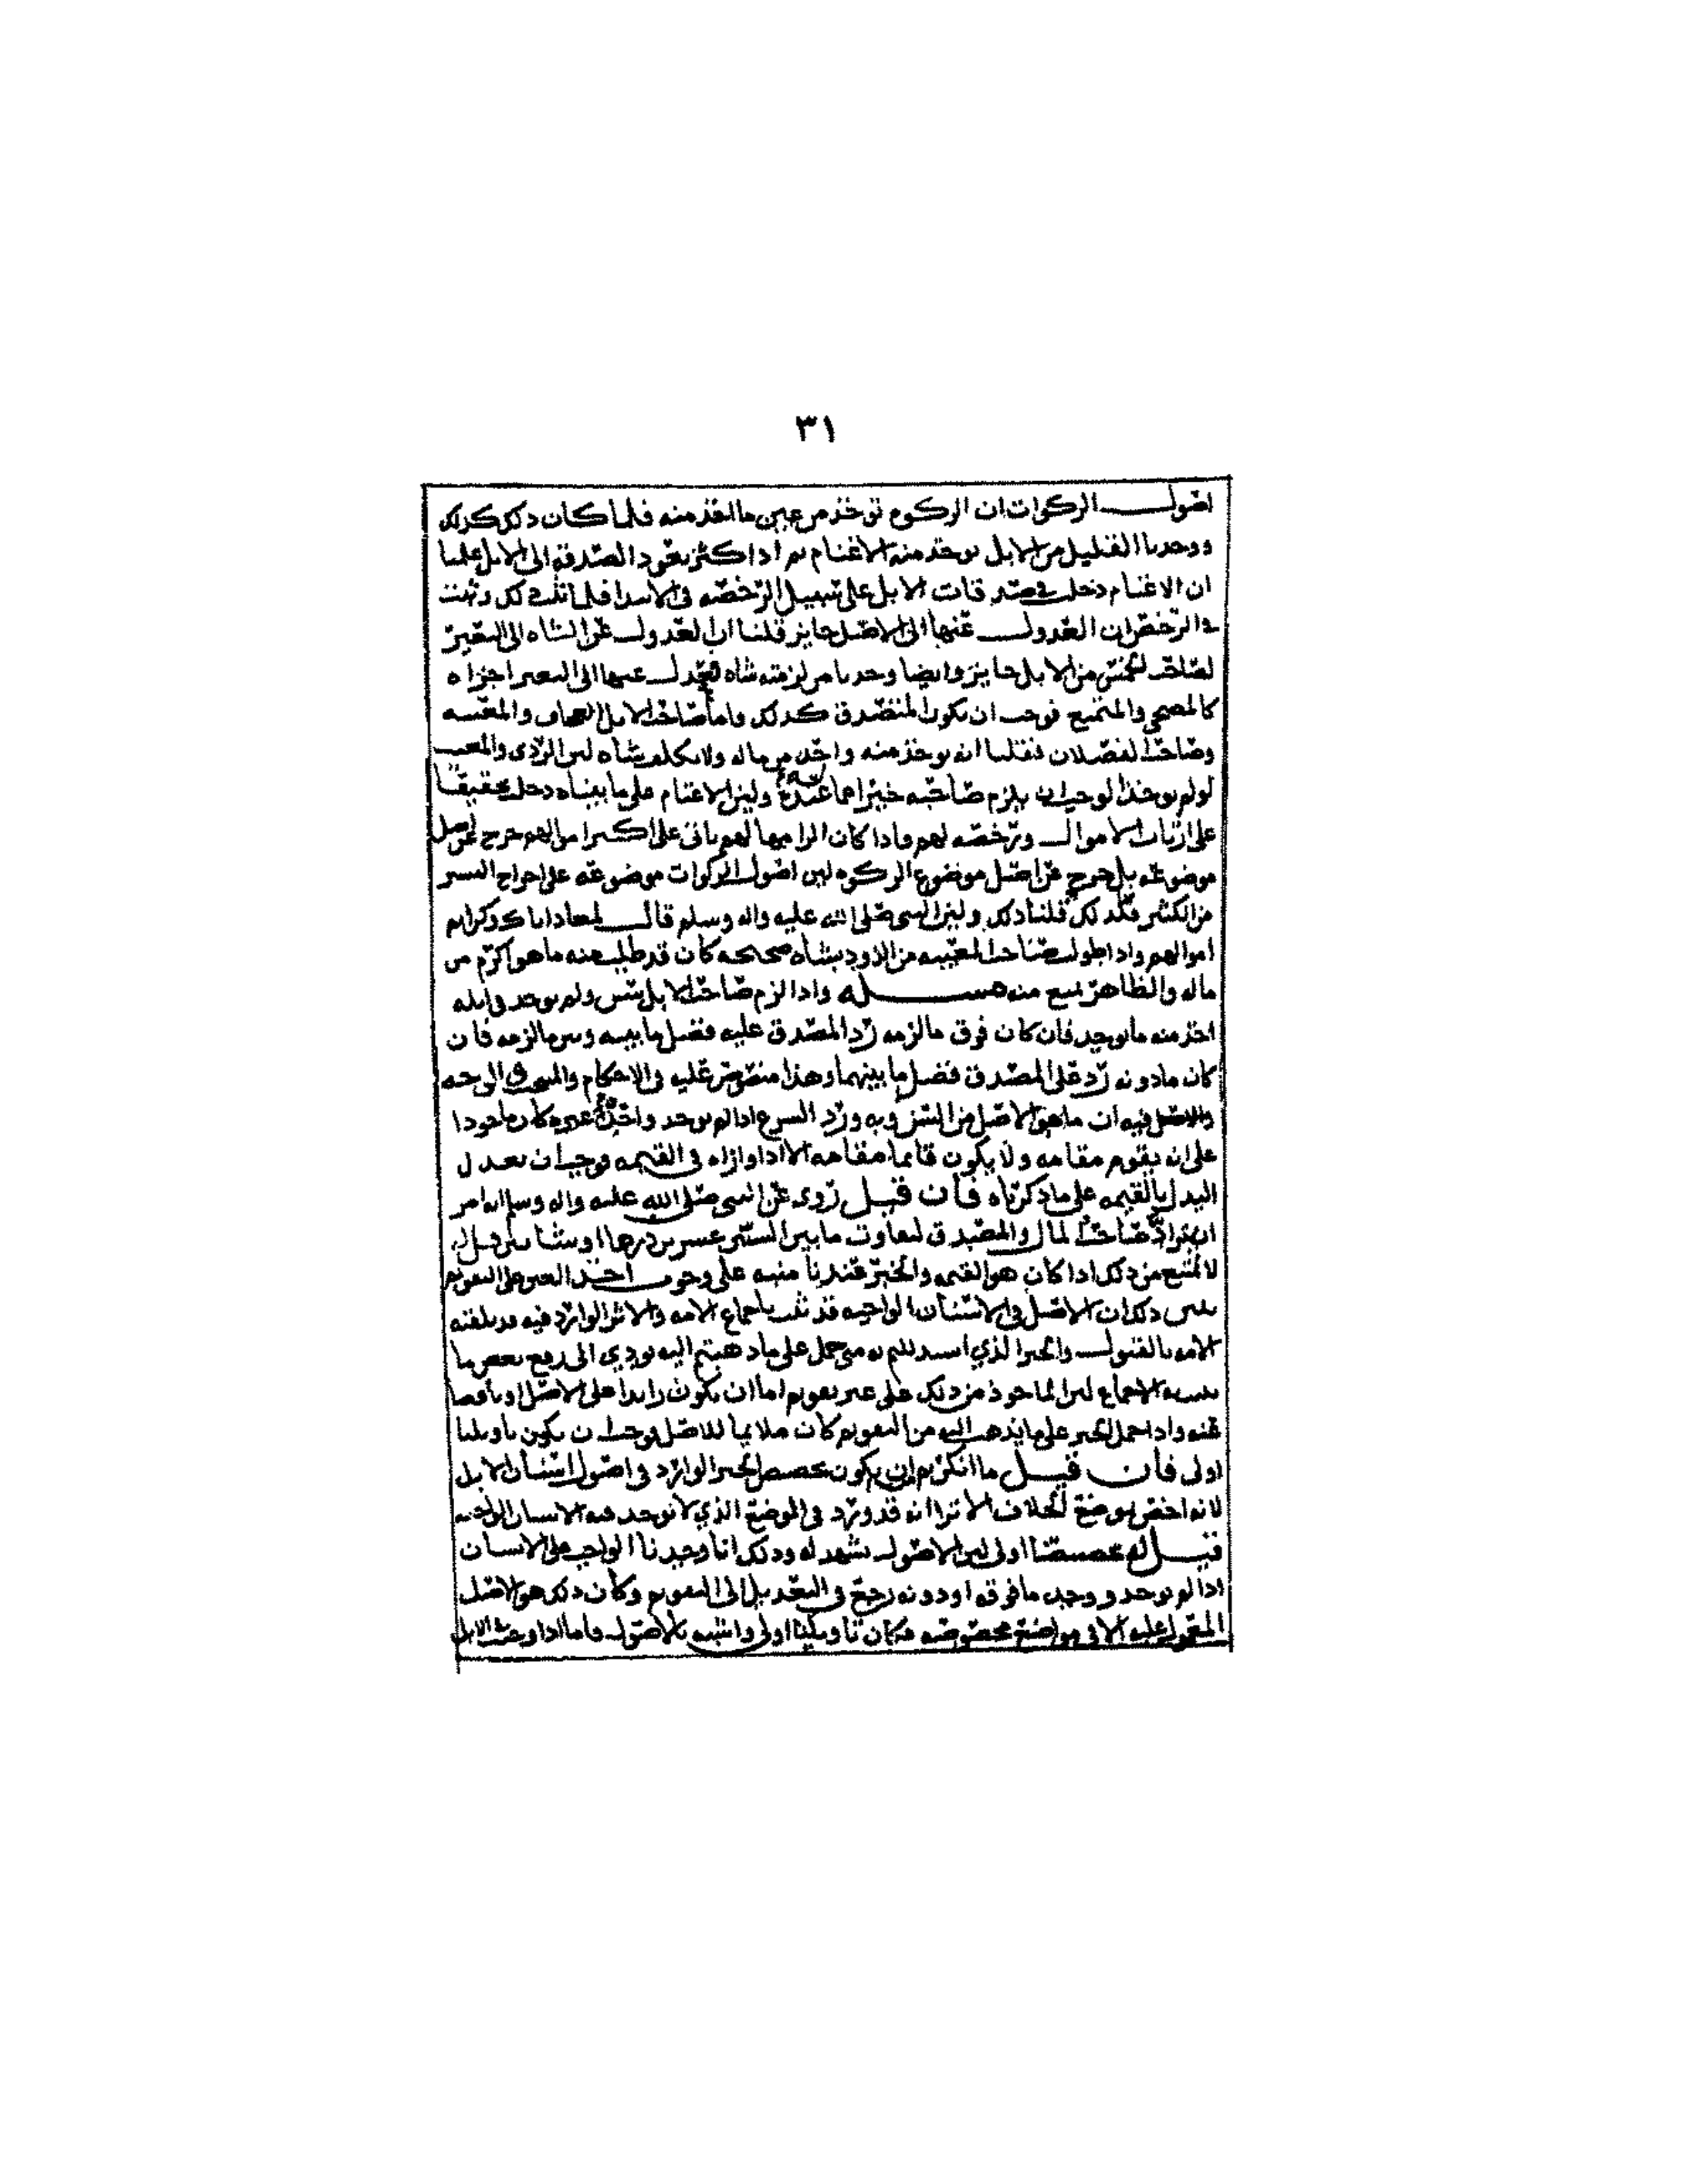 ٣١
اصولـــ الزكوات ان الزكوه توخذ من عين ما الغد منه فلما كان ذلك كذلك
ووجدنا القليل من الابل يوخذ منه الاغنام ثم اذا كثر تعود الصدقه الى الابل علمنا
ان الاغنام دخلت في صدقات الابل على سبيل الرخصه في الابتدا فلما ثبت ذلك وثبت
في الرخص ان العدولـــ عنها الى الاصل جايز قلنا ان العدولـــ عن الشاه الى البعير
لصاحب الخمس من الابل جايز وايضا وجدنا من لزمته شاه فعدلـــ عنها الى البعير اجزاه
كالمضحي والمتمتع فوجب ان يكون المتصدق كذلك واما صاحب الابل العجاف والمعيبه
وصاحب الفصلان فقلنا انه يوخذ منه واحد من ماله ولا يكلف شاه لان الردى والمعيب
لو لم يوخذ الوجب ان يلزم صاحبه خيرا مما عنده ولان الاغنام على ما بيناه دخل تخفيفا
على ارباب الاموالـــ وترخصه لهم فاذا كان الزامها لهم ياتى على اكثر اموالهم خرج عن اصل
موضوعه بل خرج عن اصل موضوع الزكوه لان اصول الزكوات موضوعه على اخراج اليسير
من الكثير فلذلك قلنا ذلك ولان النبى صلى الله عليه واله وسلم قالـــ لمعاذ اياك وكرايم
اموالهم واذا طولب صاحب المعيبه من الذود بشاه صحيحه كان قد طلب منه ما هو اكرم من
ماله والظاهر يمنع منه مســــله واذا لزم صاحب الابل سن ولم يوجد في ابله
اخذ منه ما يوجد فان كان فوق ما لزمه رد المصدق عليه فضل ما بينه وبين ما لزمه فان
كان ما دونه رد على المصدق فضل ما بينهما وهذا منصوص عليه في الاحكام والمنتخب والوجه
والاصل فيه ان ما هو الاصل من السن وبه ورد الشرع اذا لم يوجد واخذ غيره كان ماخوذا
على انه يقوم مقامه ولا يكون قايما مقامه الا اذا وازاه في القيمه فوجب ان يعدل
البدل بالقيمه على ما ذكرناه فان قيل روى عن النبى صلى الله عليه واله وسلم انه امر
ان يتراد صاحب المال والمصدق لتفاوت ما بين السنين عشرين درهما او شاتين قيل له
لا يمتنع من ذلك اذا كان هو القيمه والخبر عندنا منبه على وجوب اخذ العين على التقويم
يبين ذلك ان الاصل في الاسنان الواجبه قد ثبت باجماع الامه والاثر الوارد فيه قد تلقته
الامه بالقبولـــ والخبر الذي استدللتم به متى حمل على ما ذهبتم اليه يودي الى رفع بعض ما
يثبته الاجماع لان الماخوذ من ذلك على غير تقويم اما ان يكون زايدا على الاصل او ناقصا
عنه واذا حمل الخبر على ما يذهب اليه من التقويم كان ملايما للاصل فوجب ان يكون تاويلنا
اولى فان قيــل ما انكرتم ان يكون تخصيص الخبر الوارد في اصول اسنان الابل
لانه اخص بموضع الخلاف الا ترا انه قد ورد في الموضع الذي لا توجد فيه الاسنان الواجبه
قيــل له تخصيصنا اولى لان الاصولـــ تشهد له وذلك انا وجدنا الواجب على الانسان
اذا لم يوجد ووجد ما فوقه او دونه رجع في التعديل الى التقويم وكان ذلك هو الاصل
المعمول عليه الا في مواضع مخصوصه فكان تاويلنا اولى واشبه بالاصول فاما اذا وجد في الابل